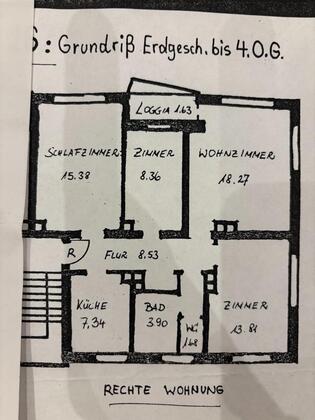 S: Grundriß Erdgesch. bis 4.O.G.
LOGGIA 1.63
SCHLAFZIMMER
15.38
ZIMMER
8.36
WOHNZIMMER
18.27
R
FLUR 8.53
KÜCHE
7,34
BAD
3.90
WC
1.68
ZIMMER
13.81
RECHTE WOHNUNG